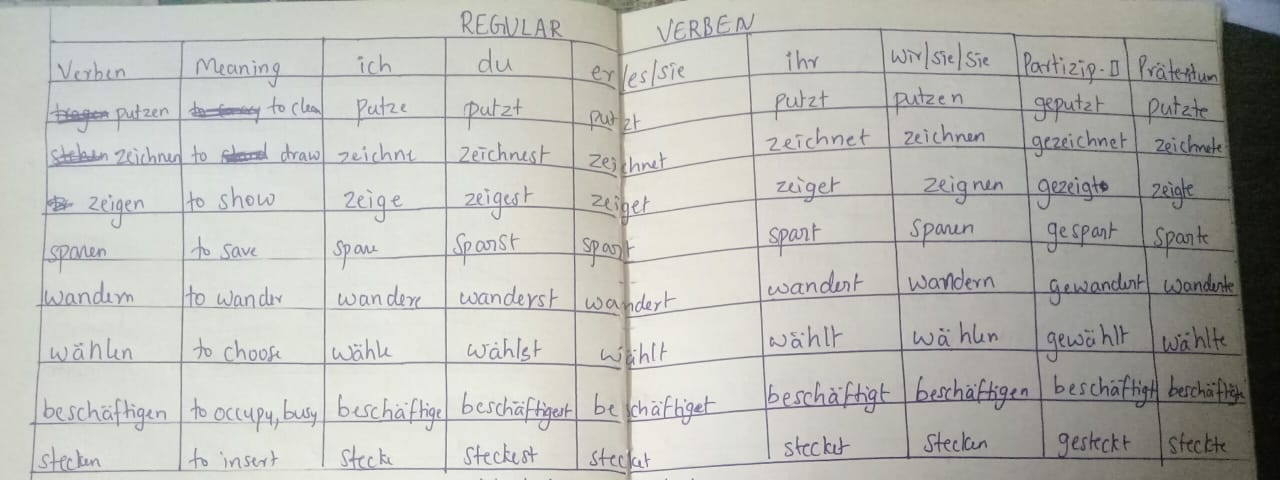 REGULAR VERBEN
Verben Meaning ich du er/es/sie ihr Wir/Sie/Sie Partizip-II Präteritum
putzen to clean putze putzt putzt putzt putzen geputzt putzte
zeichnen to draw zeichne zeichnest zeichnet zeichnet zeichnen gezeichnet zeichnete
zeigen to show zeige zeigest zeiget zeiget zeignen gezeigt zeigte
sparen to save spare sparst spart spart sparen gespart sparte
wandern to wander wandere wanderst wandert wandert wandern gewandert wanderte
wählen to choose wähle wählst wählt wählt wählen gewählt wählte
beschäftigen to occupy, busy beschäftige beschäftigest beschäftiget beschäftigt beschäftigen beschäftigt
stecken to insert stecke steckest stecket stecket stecken gesteckt steckte